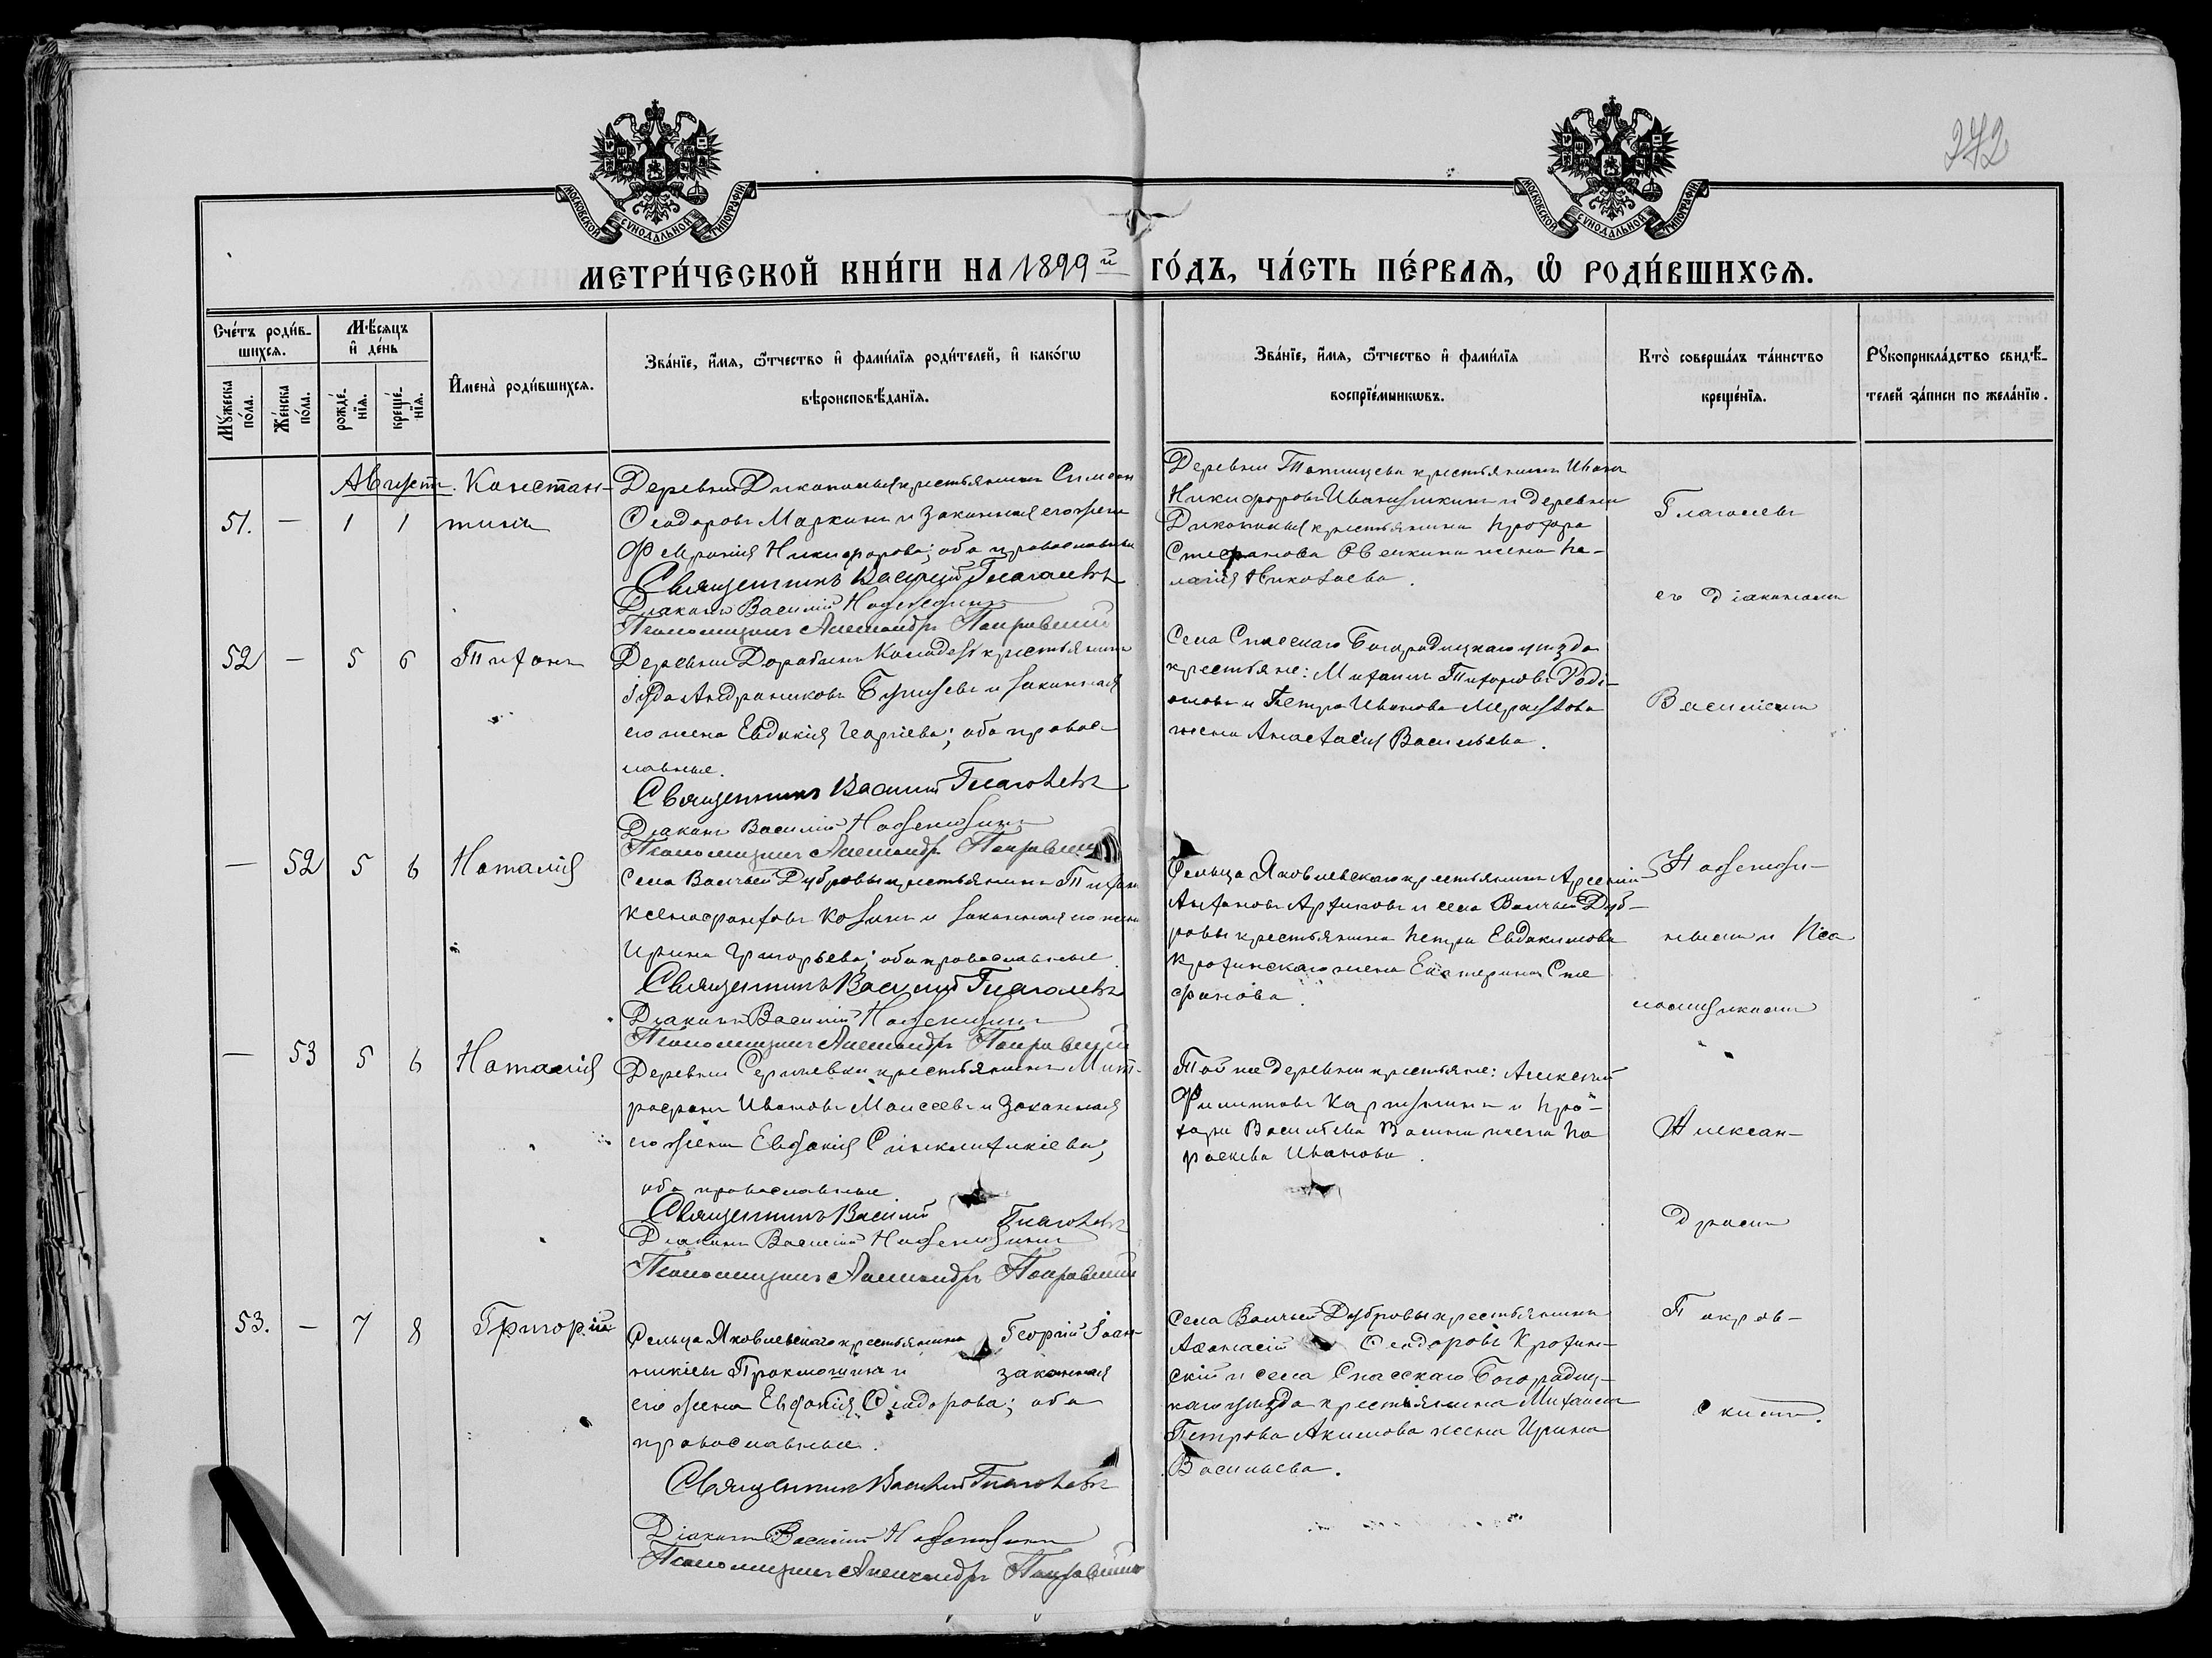 272
МОСКОВСКОЙ СУНОДАЛЬНОЙ ТИПОГРАФІИ
МОСКОВСКОЙ СУНОДАЛЬНОЙ ТИПОГРАФІИ
МЕТРИ́ЧЕСКОЙ КНИ́ГИ НА 1899й ГО́ДЪ, ЧА́СТЬ ПЕ́РВАЯ, Ѡ РОДИ́ВШИХСЯ.
Сче́тъ роди́в-
шихся.
Мѣ́сяцъ
и де́нь
Му́жеска по́ла.
Же́нска по́ла.
рожде́-
нїя.
креще́-
нїя.
Имена̀ роди́вшихся.
Зва́нїе, и́мя, ѻ́тчество и фами́лїя роди́телей, и како́гѡ
вѣроисповѣ́данїя.
Зва́нїе, и́мя, ѻ́тчество и фами́лїя
воспрїе́мникѡвъ.
Кто̀ соверша́лъ та́инство
креще́нїя.
Рукоприкла́дство свидѣ́-
телей за́писи по жела́нїю.
Августъ.
51. — 1 1 Констан-
тинъ
Деревни крестьянинъ Симеон
Ѳеодоровъ Маркинъ и законная его жена
Никифорова; оба православные
Священникъ Василій Глаголевъ
Діаконъ Василій
Псаломщикъ Александръ Покровскій
Деревни крестьянинъ Иванъ
Никифоровъ Иванушкинъ и деревни
крестьянина Прохора
Стефанова жена Пе-
лагія Николаева.
Глаголевъ
съ діакономъ
52 — 5 6 Тихонъ
Деревни Колодезь крестьянинъ
Андрониковъ и законная
его жена Евдокія Георгіева; оба правос-
лавные.
Священникъ Василій Глаголевъ
Діаконъ Василій
Псаломщикъ Александръ Покровскій
Села Спасскаго Богородицкаго уѣзда
крестьяне: Михаилъ Тихоновъ Роді-
оновъ и Петра Иванова
жена Анастасія Васильева.
Василіемъ
— 52 5 6 Наталія
Села Волчьей Дубровы крестьянинъ Тихон
Ксенофонтовъ Козинъ и законная его жена
Ирина Григорьева; оба православные
Священникъ Василій Глаголевъ
Діаконъ Василій
Псаломщикъ Александръ Покровскій
Сельца Яковлевскаго крестьянинъ Арсеній
Антоновъ и села Волчьей Дуб-
ровы крестьянина Петра Евдокимова
жена Екатерина Сте
фанова.
нымъ и Пса
ломщикомъ
— 53 5 6 Наталія
Деревни Сергиевки крестьянинъ Мит-
рофанъ Ивановъ Моисеевъ и законная
его жена Синклитикіева;
оба православные
Священникъ Василій Глаголевъ
Діаконъ Василій
Псаломщикъ Александръ Покровскій
Той же деревни крестьяне: Алексій
Филипповъ и Про-
хора Васильева жена Па
раскева Иванова.
Алексан-
дромъ
53. — 7 8 Григорій
Сельца Яковлевскаго крестьянинъ Георгій Іоан-
никіевъ и законная
его жена Ѳеодорова; оба
православные.
Священникъ Василій Глаголевъ
Діаконъ Василій
Псаломщикъ Александръ Покровскій
Села Волчьей Дубровы крестьянинъ
Аѳанасій Ѳеодоровъ Крохин-
скій и села Спасскаго Богородиц-
каго уѣзда крестьянина Михаила
Петрова Акимова жена Ирина
Васильева.
Покров-
скимъ.